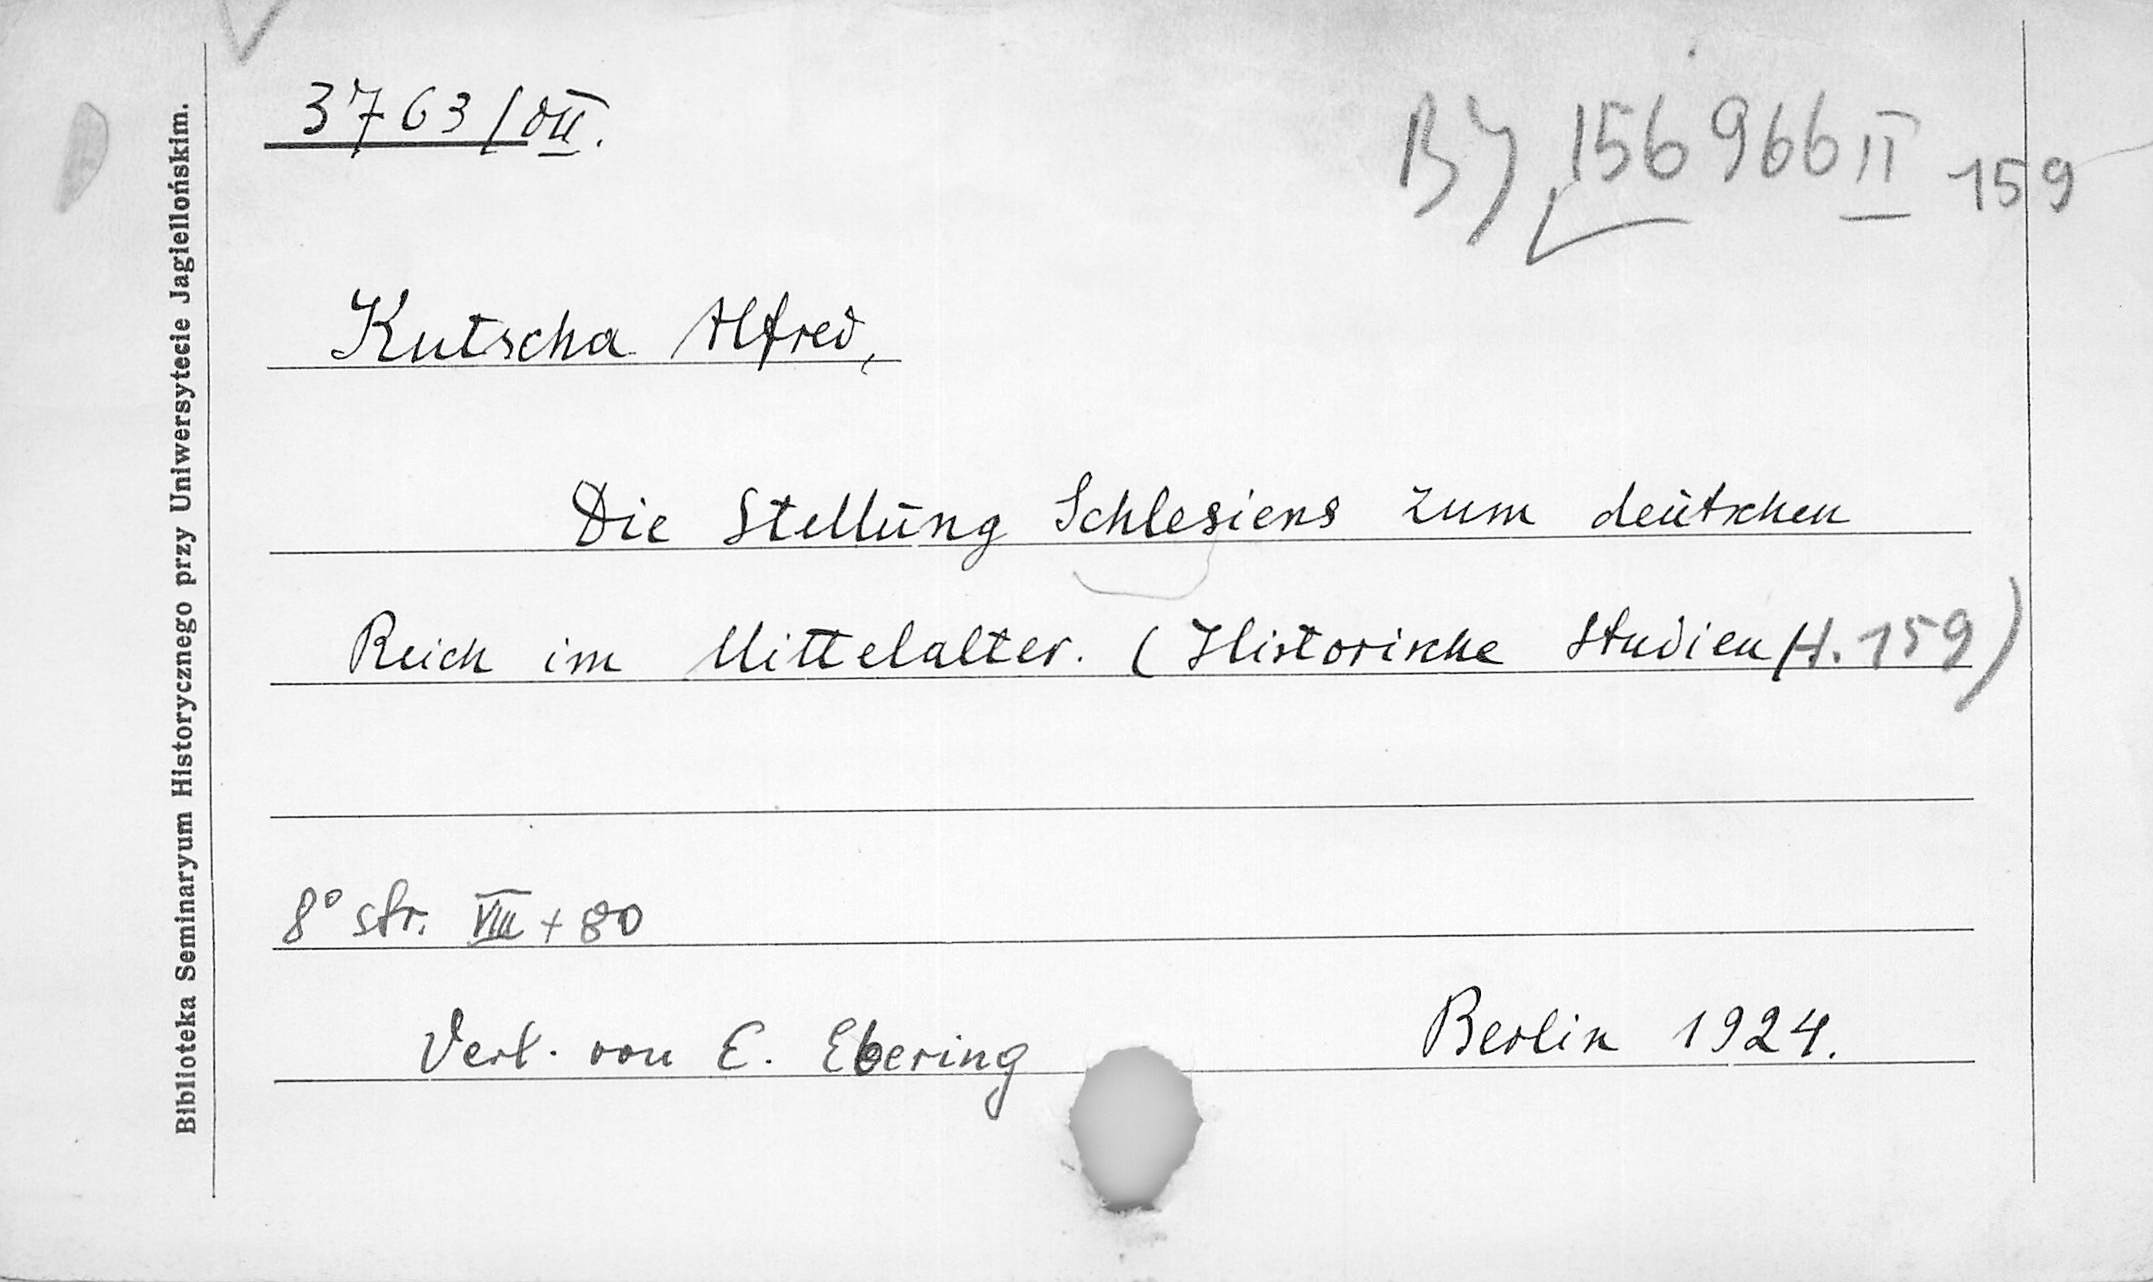 3763/VII.
BJ 156966 II 159
Kutscha Alfred,
Die Stellūng Schlesiens zum deūtschen
Reich im Mittelalter. (Historische Studien H. 159)
8° str. VIII + 80
Verl. von E. Ebering Berlin 1924.
Biblioteka Seminaryum Historycznego przy Uniwersytecie Jagiellońskim.